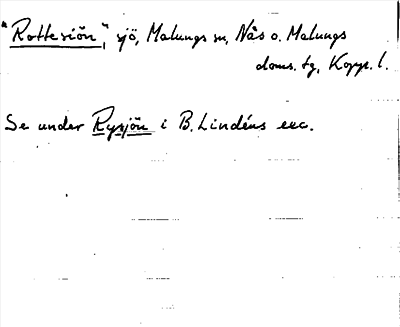 "Rottesiön", sjö, Malungs sn, Nås o. Malungs
doms. tg, Kopp. l.
Se under Rysjön i B. Lindéns exc.